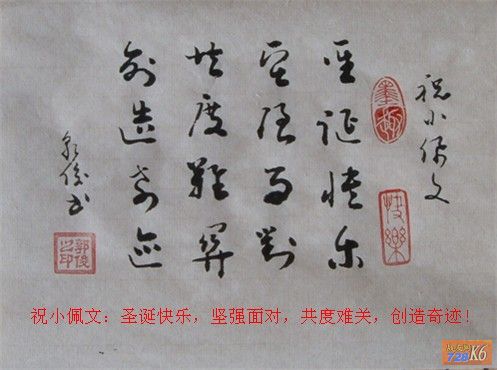 祝小佩文
圣诞快乐
坚强面对
共度难关
创造奇迹
书
快樂
郭俊之印
祝小佩文：圣诞快乐，坚强面对，共度难关，创造奇迹！
728K6